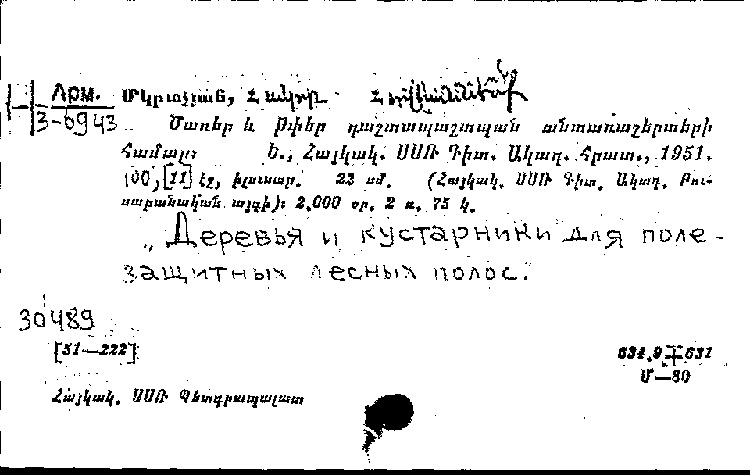 Арм. Մկրտչյան, Հակոբ Հովհաննեսի
3-6943 Ծառեր և թփեր դաշտապաշտպան անտառաշերտերի
համար: Ե., Հայկակ. ՍՍՌ Գիտ. Ակադ. Հրատ., 1951.
100, [11] էջ, իլուստր. 23 սմ. (Հայկակ. ՍՍՌ Գիտ. Ակադ. Բու-
սաբանական այգի): 2.000 օր. 2 ռ. 75 կ.
„Деревья и кустарники для поле-
защитных лесных полос.
30489
[51—222] 634.9+631
Մ—80
Հայկակ. ՍՍՌ Պետգրապալատ